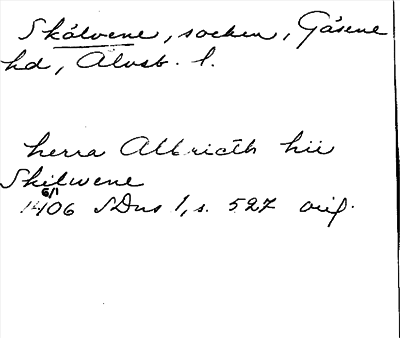 Skölvene, socken, Gäsene
hd, Älvsb. l.
herra Albricth hii
Skilwene
6/1
1406 SDns 1, s. 527 orig.